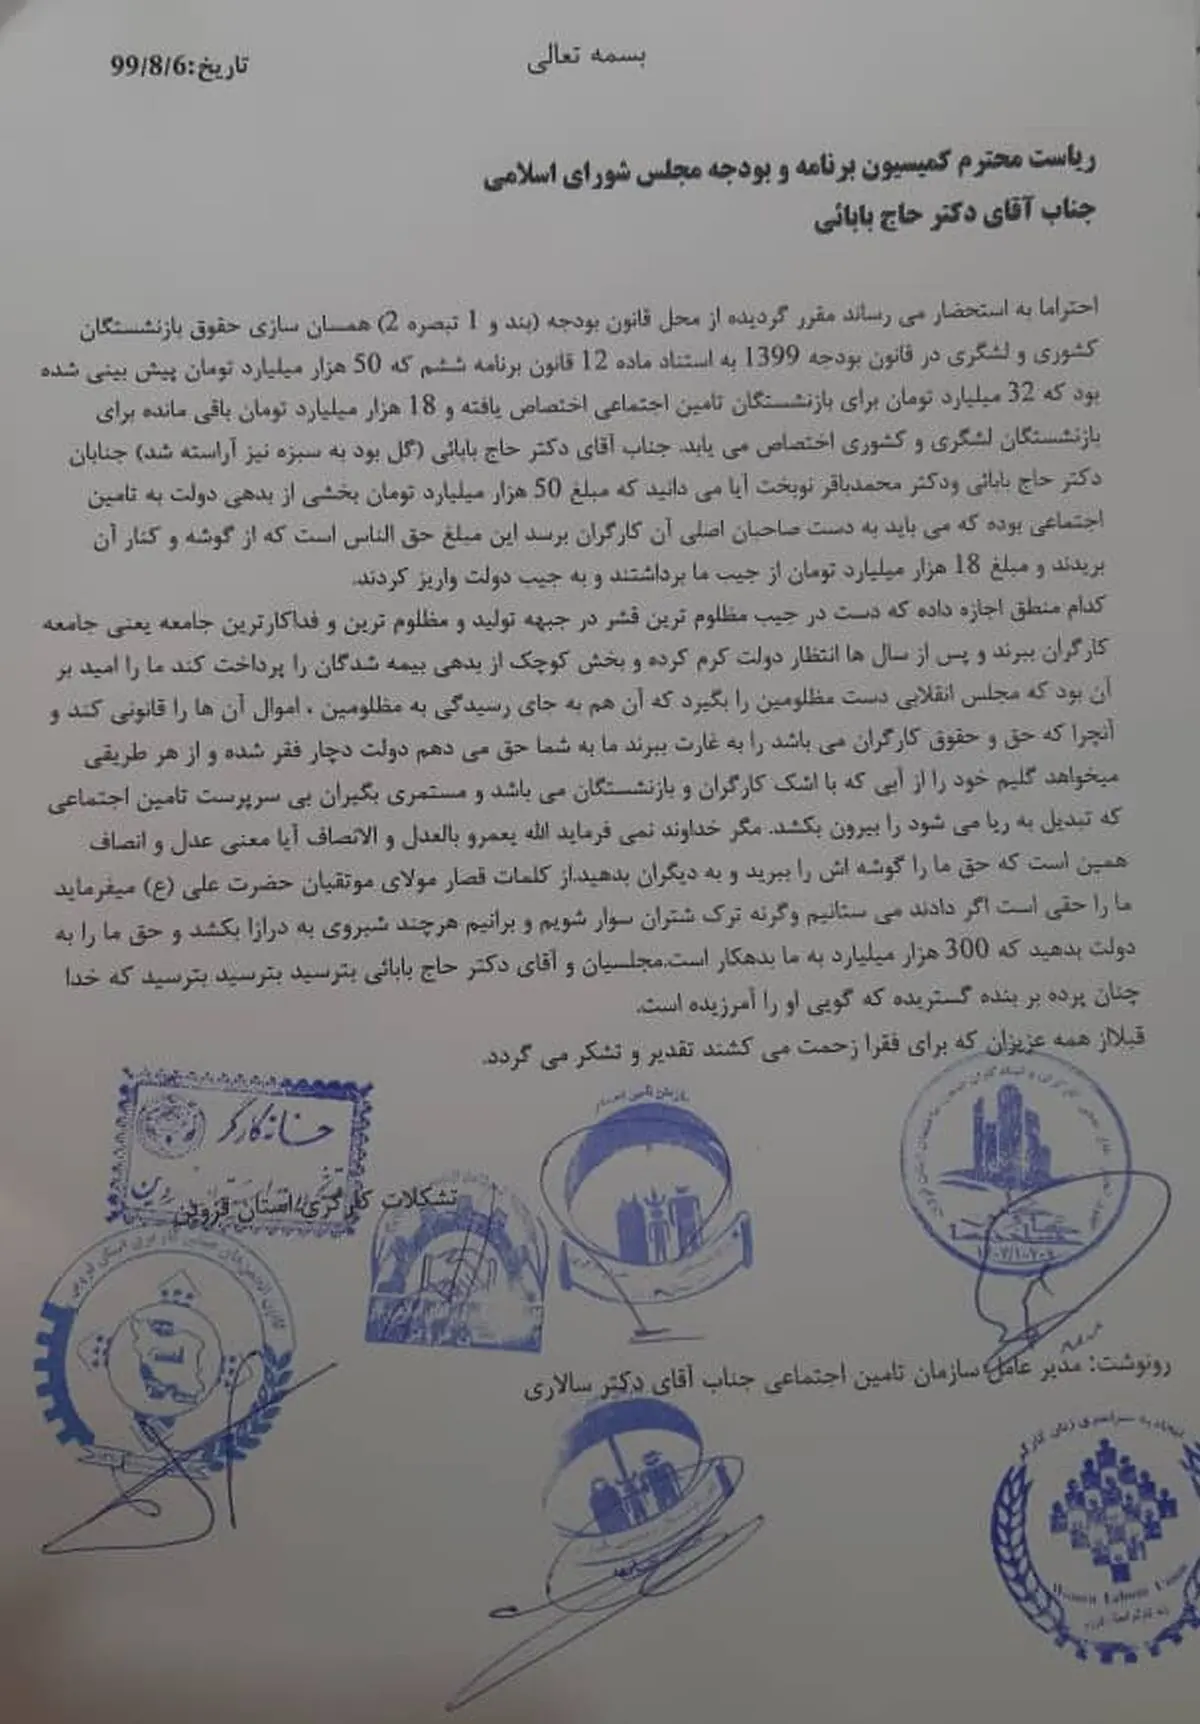 بسمه تعالی
تاریخ:99/8/6
ریاست محترم کمیسیون برنامه و بودجه مجلس شورای اسلامی
جناب آقای دکتر حاج بابائی
احتراما به استحضار می رساند مقرر گردیده از محل قانون بودجه (بند و 1 تبصره 2) همسان سازی حقوق بازنشستگان
کشوری و لشگری در قانون بودجه 1399 به استناد ماده 12 قانون برنامه ششم که 50 هزار میلیارد تومان پیش بینی شده
بود که 32 میلیارد تومان برای بازنشستگان تامین اجتماعی اختصاص یافته و 18 هزار میلیارد تومان باقی مانده برای
بازنشستگان لشگری و کشوری اختصاص می یابد. جناب آقای دکتر حاج بابائی (گل بود به سبزه نیز آراسته شد) جنابان
دکتر حاج بابائی ودکتر محمدباقر نوبخت آیا می دانید که مبلغ 50 هزار میلیارد تومان بخشی از بدهی دولت به تامین
اجتماعی بوده که می باید به دست صاحبان اصلی آن کارگران برسد این مبلغ حق الناس است که از گوشه و کنار آن
بریدند و مبلغ 18 هزار میلیارد تومان از جیب ما برداشتند و به جیب دولت واریز کردند.
کدام منطق اجازه داده که دست در جیب مظلوم ترین قشر در جبهه تولید و مظلوم ترین و فداکارترین جامعه یعنی جامعه
کارگران ببرند و پس از سال ها انتظار دولت کرم کرده و بخش کوچک از بدهی بیمه شدگان را پرداخت کند ما را امید بر
آن بود که مجلس انقلابی دست مظلومین را بگیرد که آن هم به جای رسیدگی به مظلومین ، اموال آن ها را قانونی کند و
آنچرا که حق و حقوق کارگران می باشد را به غارت ببرند ما به شما حق می دهم دولت دچار فقر شده و از هر طریقی
میخواهد گلیم خود را از آبی که با اشک کارگران و بازنشستگان می باشد و مستمری بگیران بی سرپرست تامین اجتماعی
که تبدیل به ریا می شود را بیرون بکشد. مگر خداوند نمی فرماید الله یعمرو بالعدل و الانصاف آیا معنی عدل و انصاف
همین است که حق ما را گوشه اش را ببرید و به دیگران بدهید.از کلمات قصار مولای موتقیان حضرت علی (ع) میفرماید
ما را حقی است اگر دادند می ستانیم وگرنه ترک شتران سوار شویم و برانیم هرچند شبروی به درازا بکشد و حق ما را به
دولت بدهید که 300 هزار میلیارد به ما بدهکار است.مجلسیان و آقای دکتر حاج بابائی بترسید بترسید بترسید که خدا
چنان پرده بر بنده گستریده که گویی او را آمرزیده است.
قبلااز همه عزیزان که برای فقرا زحمت می کشند تقدیر و تشکر می گردد.
خانه کارگر
تشکلات کارگری استان قزوین
رونوشت: مدیر عامل سازمان تامین اجتماعی جناب آقای دکتر سالاری
اتحادیه سراسری زنان کارگر
Women Labour Union